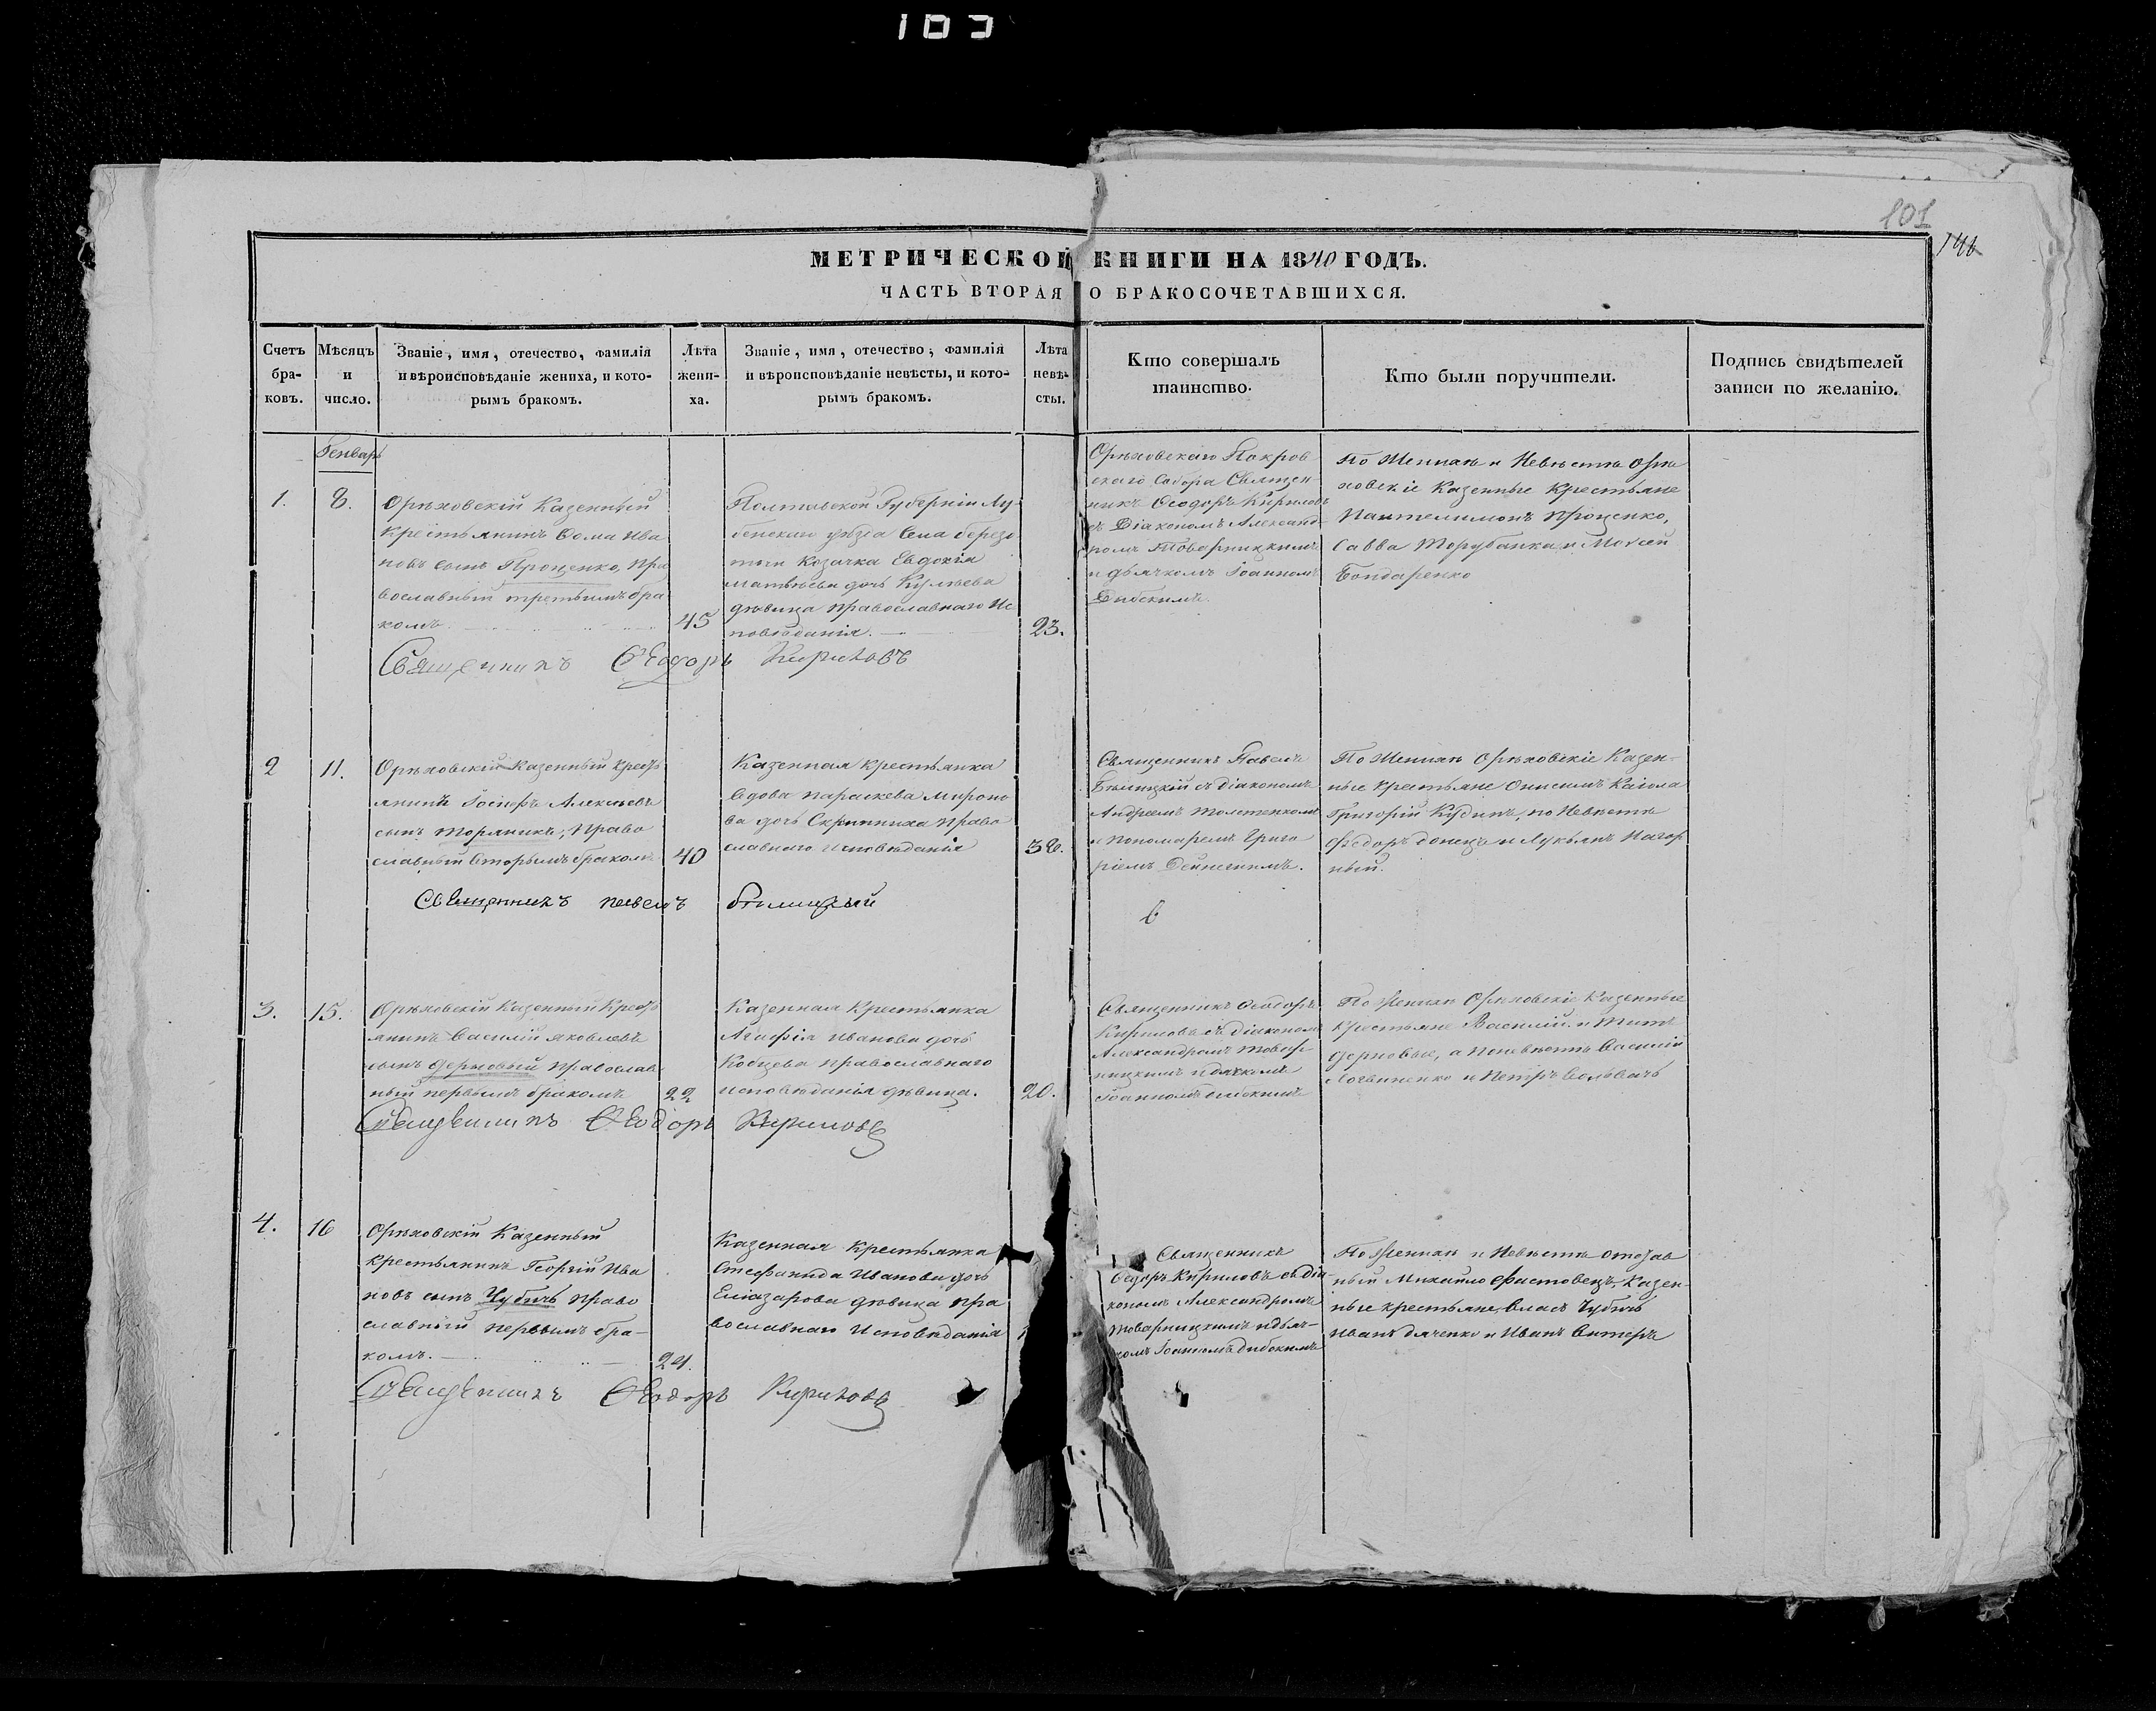 103
101
146
МЕТРИЧЕСКОЙ КНИГИ НА 1840 ГОДЪ.
ЧАСТЬ ВТОРАЯ О БРАКОСОЧЕТАВШИХСЯ.
Счетъ
бра-
ковъ.
Мѣсяцъ
и
число.
Званіе, имя, отечество, фамилія
и вѣроисповѣданіе жениха, и кото-
рымъ бракомъ.
Лѣта
жени-
ха.
Званіе, имя, отечество, фамилія
и вѣроисповѣданіе невѣсты, и кото-
рымъ бракомъ.
Лѣта
невѣ-
сты.
Кто совершалъ
таинство.
Кто были поручители.
Подпись свидѣтелей
записи по желанію.
Генварь
1.
8.
Орѣховскій Казенный
Крестьянинъ Ѳома Ива
новъ сынъ Проценко, пра
вославный третьимъ бра
комъ.
45
Полтавской Губерніи Лу-
бенскаго уѣзда Села березо
точи Козачка Евдокія
матвѣева дочь Кулѣева
дѣвица православнаго Ис
повѣданія.
23.
Орѣховскаго Покров
скаго Собора Священ-
никъ Ѳеодоръ Кириловъ
съ Діакономъ Александ-
ромъ Товарницкимъ
и дьячкомъ Іоанномъ
Дибскимъ.
По Женихѣ и Невѣстѣ Орѣ
ховскіе Казенные Крестьяне
Пантелимонъ Проценко,
Савва Торубанка и Моѵсей
Бондаренко
Священникъ Ѳеодоръ Кириловъ
2
11.
Орѣховскій Казенный Кресть
янинъ Іосифъ Алексѣевъ
сынъ Торяникъ, Право
славный вторымъ бракомъ
40
Казенная крестьянка
вдова параскева миронo
ва дочь Скрипника право
славнаго исповѣданія
38.
Священникъ Павелъ
Билицкій съ діакономъ
Андреемъ Толстенкомъ
и Пономаремъ Григо
ріемъ Дейнегимъ.
По Женихѣ Орѣховскіе Казен-
ные крестьяне Онисимъ Каюла
Григорій Кудинъ, по Невѣстѣ
Федоръ донецъ и Лукьянъ Нагор
ный.
Священникъ павелъ Билицкій
3.
15.
Орѣховскій Казенный Кресть
янинъ Василій яковлевъ
сынъ дерновый православ
ный первымъ бракомъ
22
Казенная Крестьянка
Агафія Иванова дочь
Кобцева православнаго
исповѣданія дѣвица.
20.
Священникъ Ѳеодоръ
Кириловъ съ діакономъ
Александромъ товар-
ницкимъ и дьячкомъ
Іоанномъ дибскимъ
По Женихѣ Орѣховскіе Казенные
крестьяне Василій и Титъ
дерновые, а поневѣстѣ Василій
Логвиненко и Петръ Вольвачъ
Священникъ Ѳеодоръ Кириловъ
4.
16
Орѣховскій Казенный
крестьянинъ Георгій Ива
новъ сынъ Чубичъ право
славный первымъ бра-
комъ.
24.
Казенная крестьянка
Стефанида Иванова дочь
Елиазарова дѣвица пра
вославнаго Исповѣданія
Священникъ
Ѳедоръ Кириловъ съ діа-
кономъ Александромъ
товарницкимъ и дьяч-
комъ Іоанномъ дибскимъ
По Женихѣ и Невѣстѣ отстав
ный Михайло Фастовецъ, Казен-
ные крестьяне, Власъ Чубичъ
Иванъ дяченко и Иванъ Ситеръ
Священникъ Ѳеодоръ Кириловъ